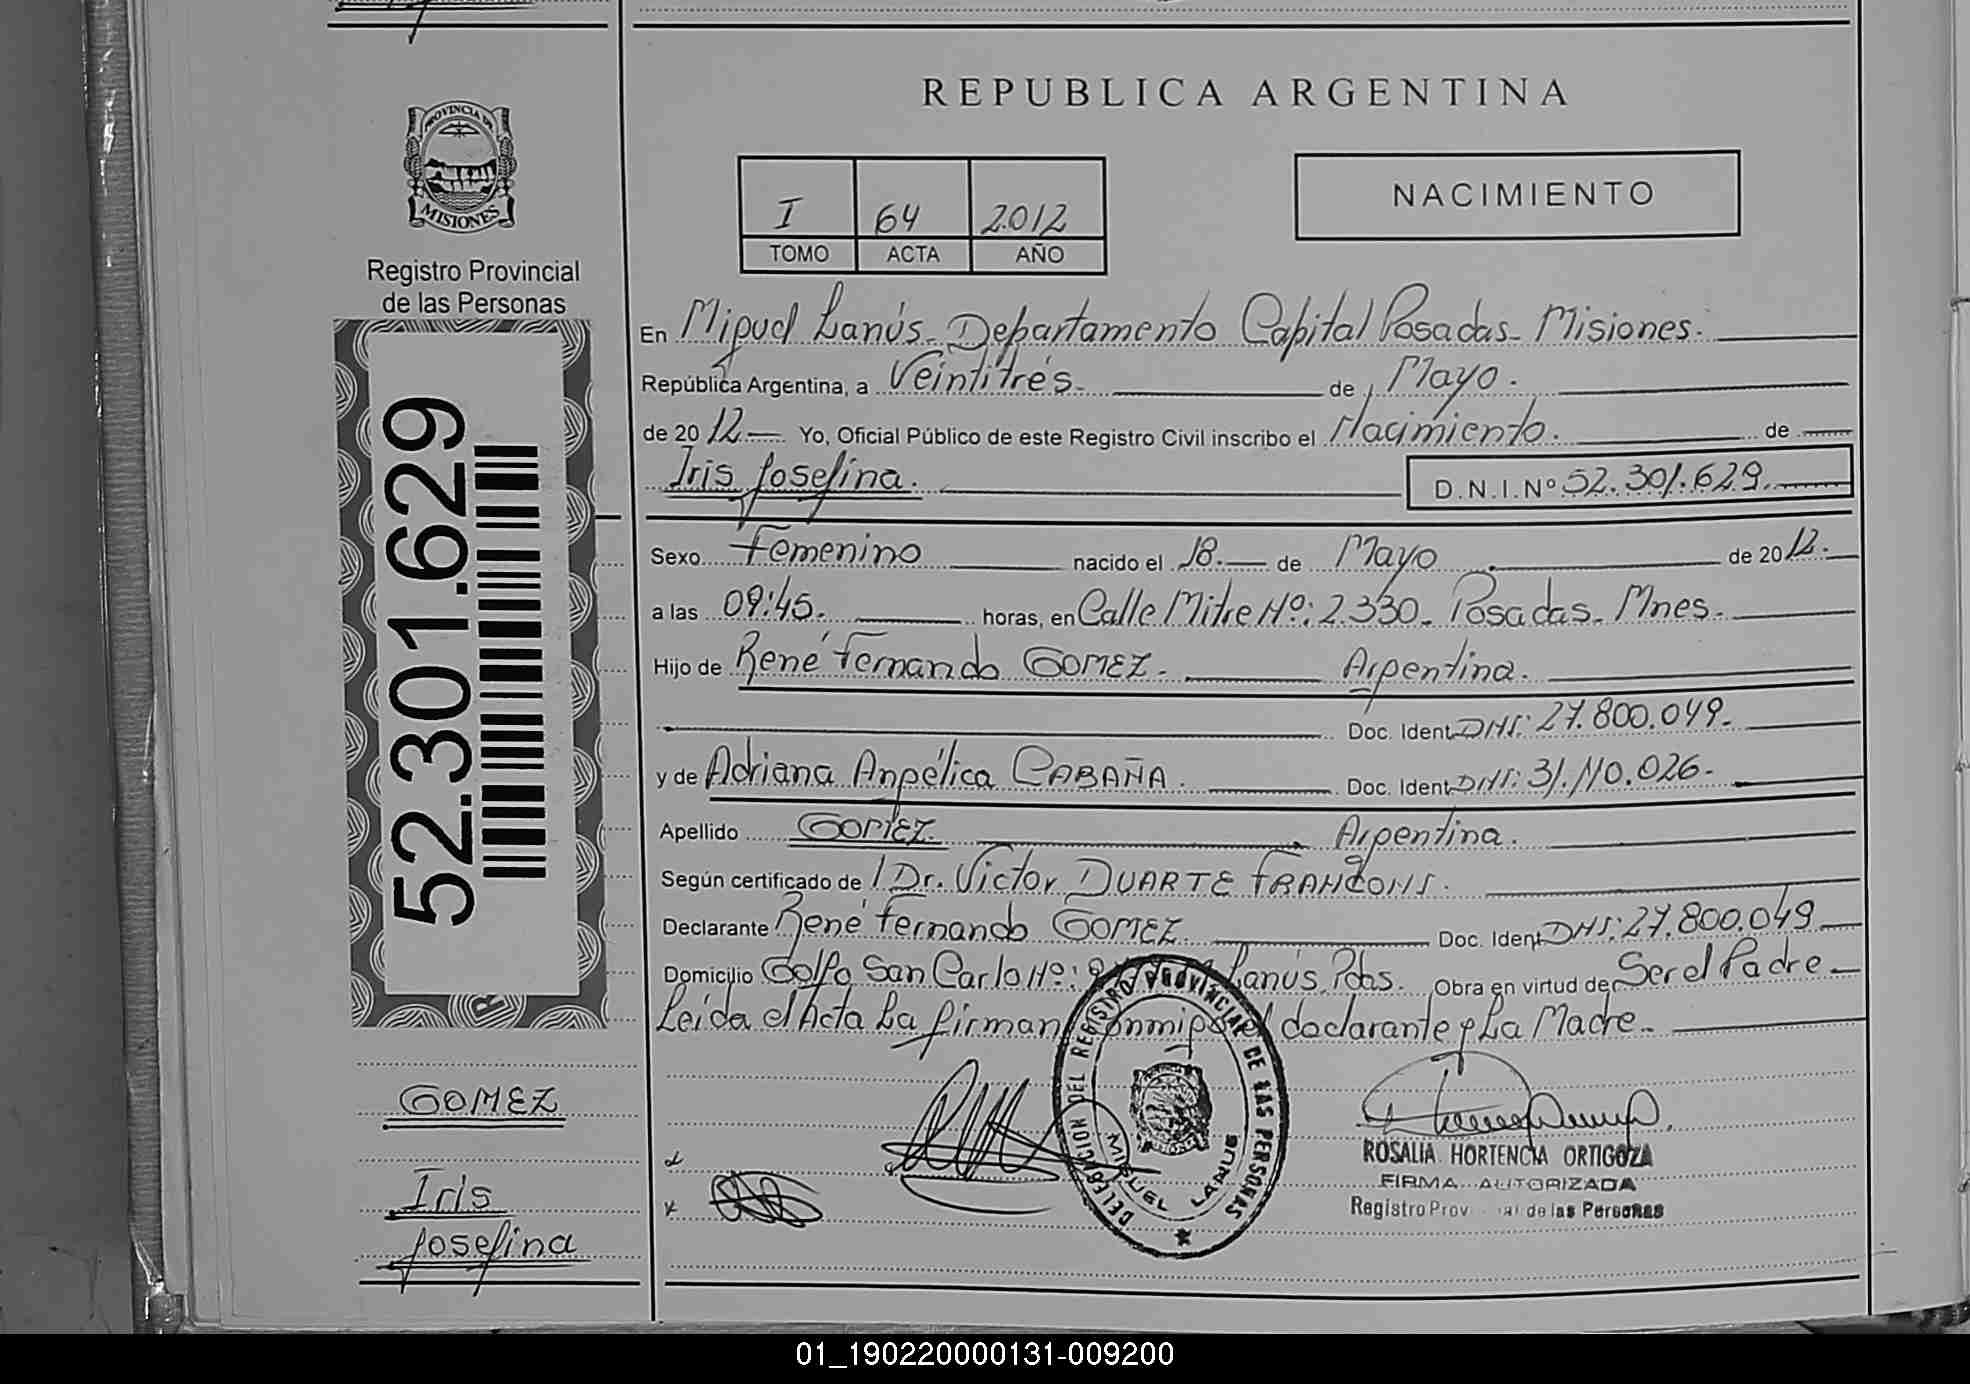 REPUBLICA ARGENTINA
PROVINCIA DE
MISIONES
Registro Provincial
de las Personas
52.301.629
I 64 2012
TOMO ACTA AÑO
NACIMIENTO
En Miguel Lanús - Departamento Capital Posadas - Misiones.
República Argentina, a Veintitrés de Mayo.
de 2012 Yo, Oficial Público de este Registro Civil inscribo el Nacimiento. de
Iris Josefina. D.N.I.Nº 52.301.629
Sexo Femenino nacido el 18. de Mayo de 2012.
a las 09:45. horas, en Calle Mitre Nº: 2.330 - Posadas - Mnes.
Hijo de René Fernando GOMEZ - Argentina.
Doc. Ident DNI: 27.800.049.
y de Adriana Angélica CABAÑA. Doc. Ident DNI: 31.110.026.
Apellido GOMEZ. Argentina.
Según certificado de Dr. Victor DUARTE
Declarante René Fernando GOMEZ Doc. Ident DNI: 27.800.049
Domicilio Golfo San Carlo Nº: Lanús Pdas. Obra en virtud de Ser el Padre
Leída el Acta La firman conmigo el declarante y La Madre.
GOMEZ
Iris
Josefina
DELEGACION DEL REGISTRO PROVINCIAL DE LAS PERSONAS
MIGUEL LANUS
ROSALIA HORTENCIA ORTIGOZA
FIRMA AUTORIZADA
Registro Prov al de las Personas
01_190220000131-009200